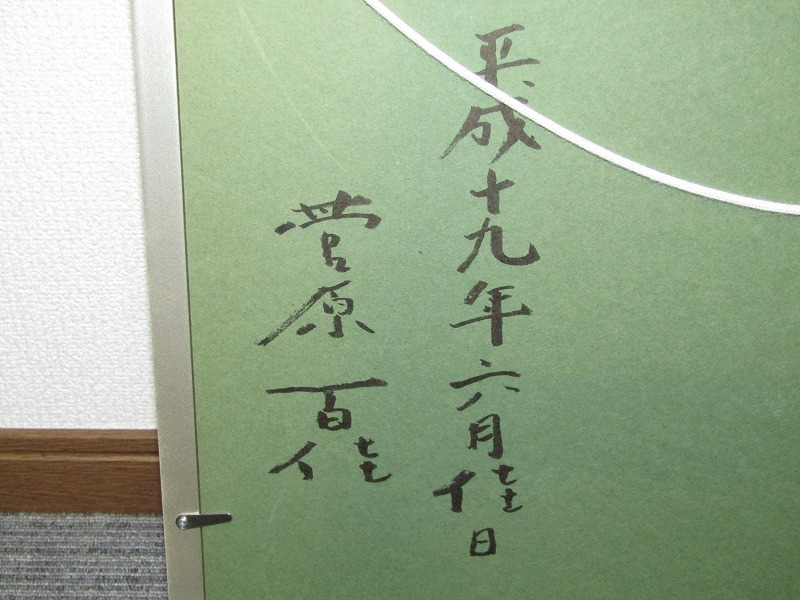 平成十九年六月佳日
菅原百佳